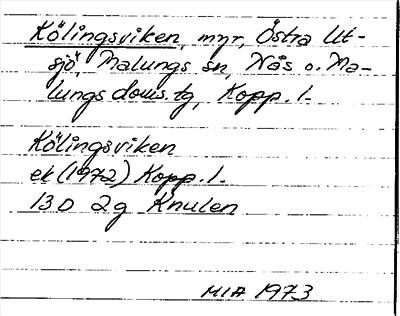 Kölingsviken, myr, Östra Ut-
sjö, Malungs sn, Nås o. Ma-
lungs doms.tg, Kopp. l.
Kölingsviken
ek (1972) Kopp. l.
13 D 2g Knulen
MIA 1973